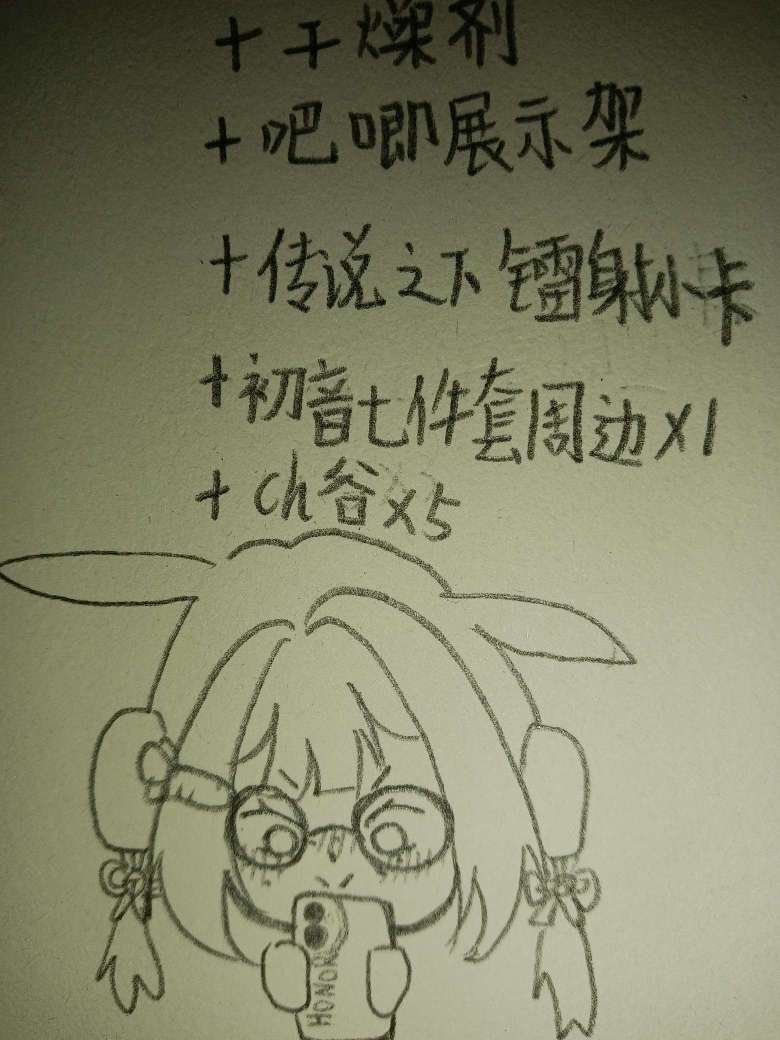 +干燥剂
+吧唧展示架
+传说之下镭射小卡
+初音七件套周边x1
+ch谷x5
HONOR